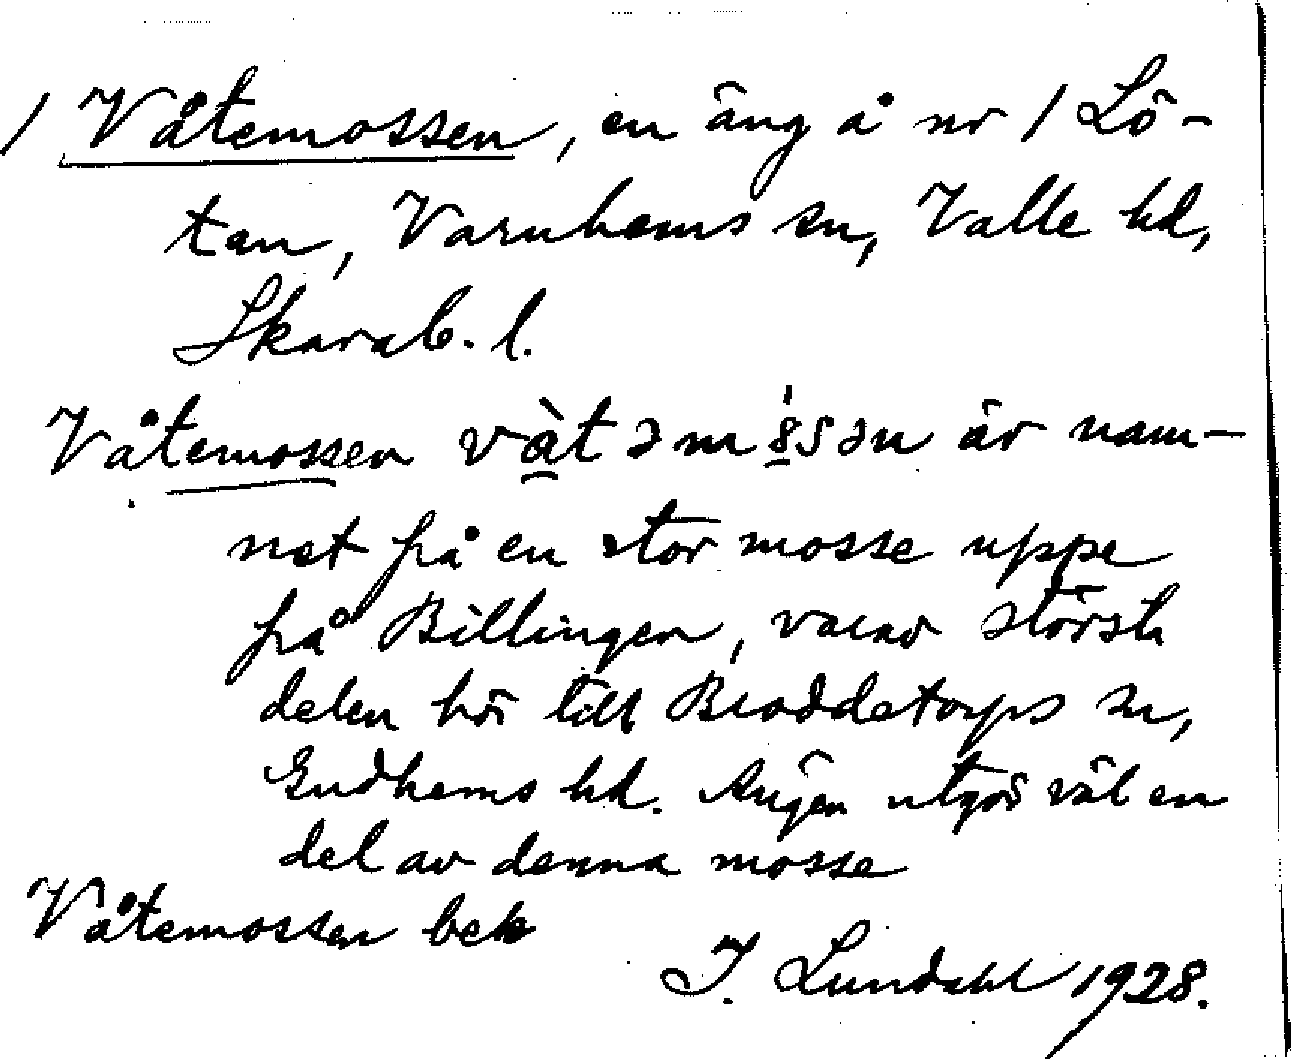 1 Våtemossen, en äng å nr 1 Lö-
tan, Varnhems sn, Valle hd,
Skarab. l.
Våtemossen är nam-
net på en stor mosse uppe
på Billingen, varav största
delen hör till Broddetorps sn,
Gudhems hd. Ängen utgör väl en
del av denna mosse
Våtemossen bek
I. Lundahl 1928.